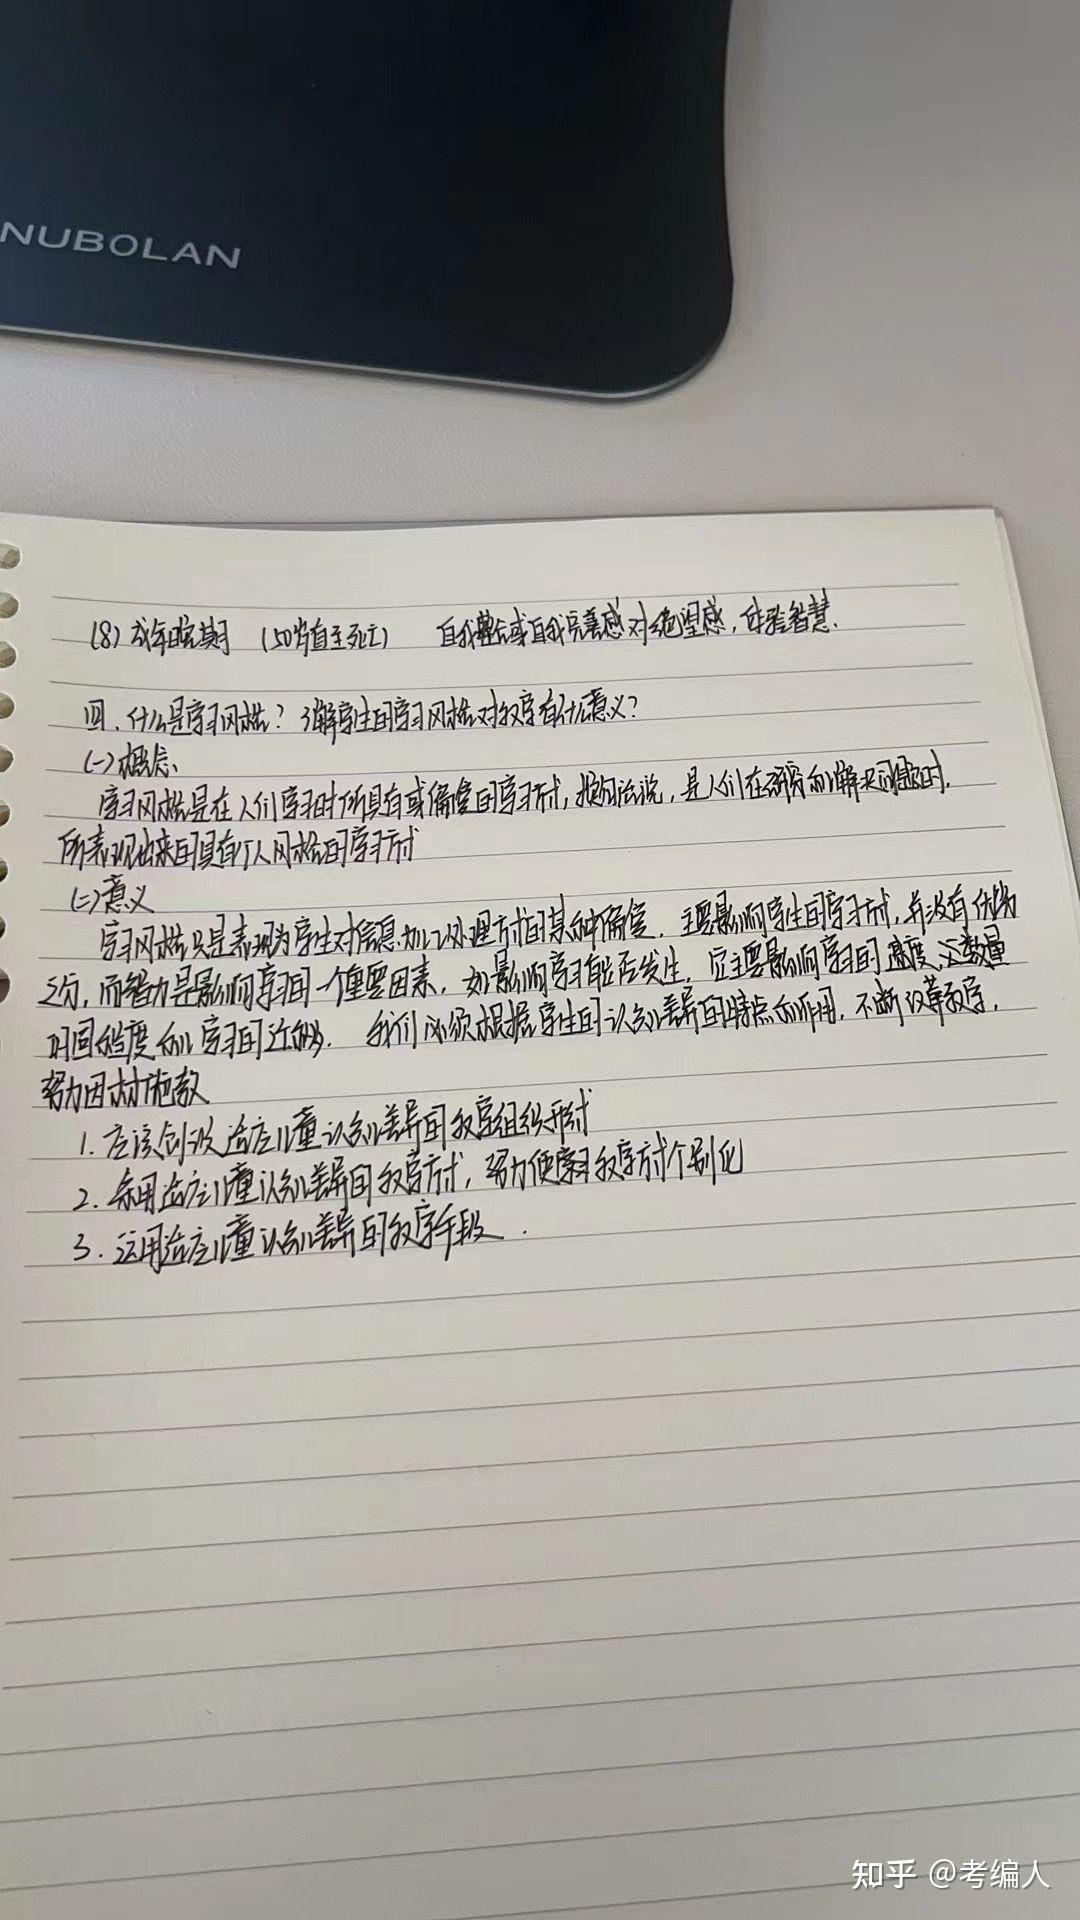 NUBOLAN
(8) 成年晚期 (50岁直至死亡) 自我整合或自我完善感对绝望感,体验智慧.
四、什么是学习风格?了解学生的学习风格对教学有什么意义?
(一)概念、
学习风格是在人们学习时所具有或偏爱的学习方式,换句话说,是人们在研究和解决问题时,
所表现出来的具有个人风格的学习方式
(二)意义
学习风格只是表现为学生对信息加工处理方式的某种偏爱.主要影响学生的学习方式,并没有优劣
之分,而智力是影响学习的一个重要因素,如影响学习能否发生,它主要影响学习的速度、数量
巩固程度和学习的迁移.我们必须根据学生的认知差异的特点和作用,不断改革教学,
努力因材施教
1.应该创设适应儿童认知差异的教学组织形式
2.采用适应儿童认知差异的教学方式,努力使学习教学方式个别化
3.运用适应儿童认知差异的教学手段.
知乎 @考编人